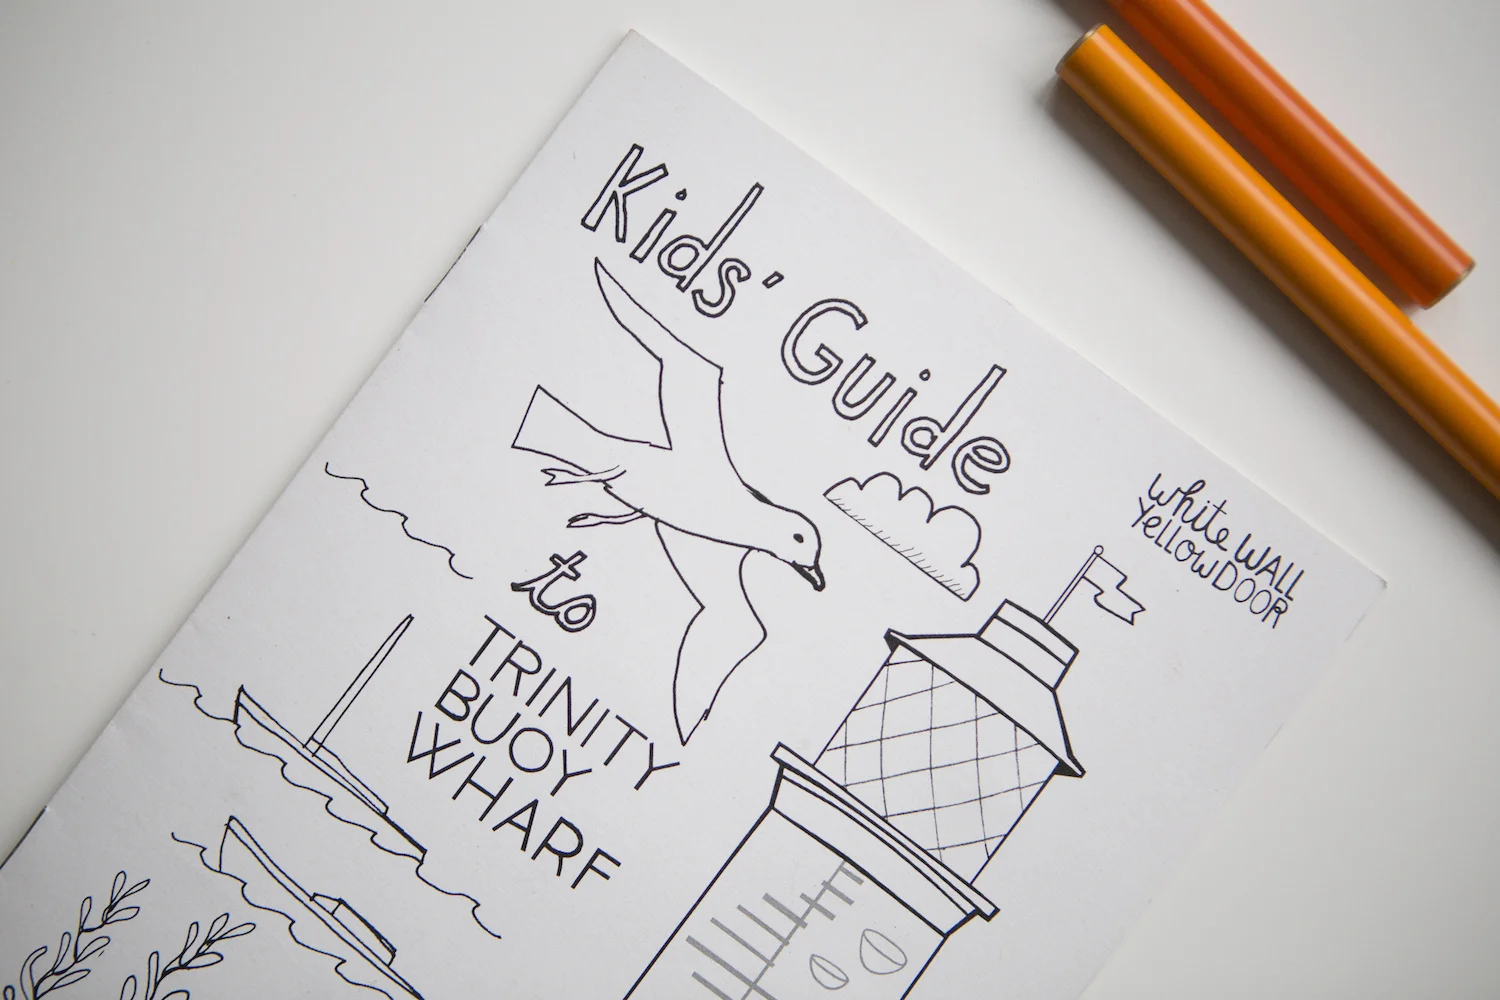 Kids' Guide
to
TRINITY
BUOY
WHARF
white WALL
YELLOW DOOR